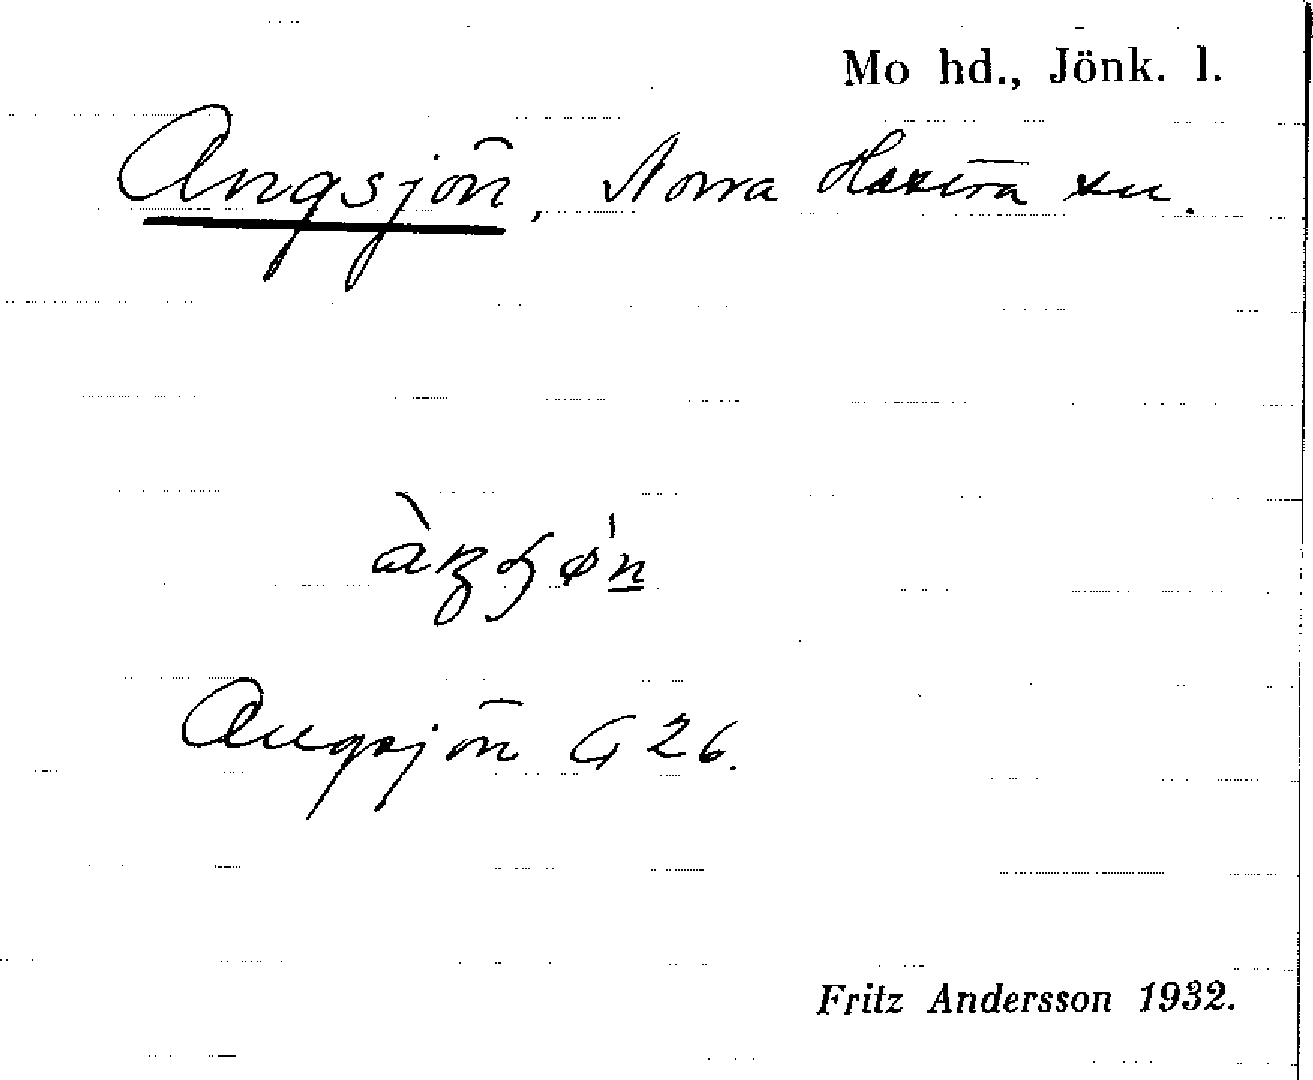 Mo hd., Jönk. l.
Angsjön, Norra Hestra sn.
Angsjön G 26.
Fritz Andersson 1932.